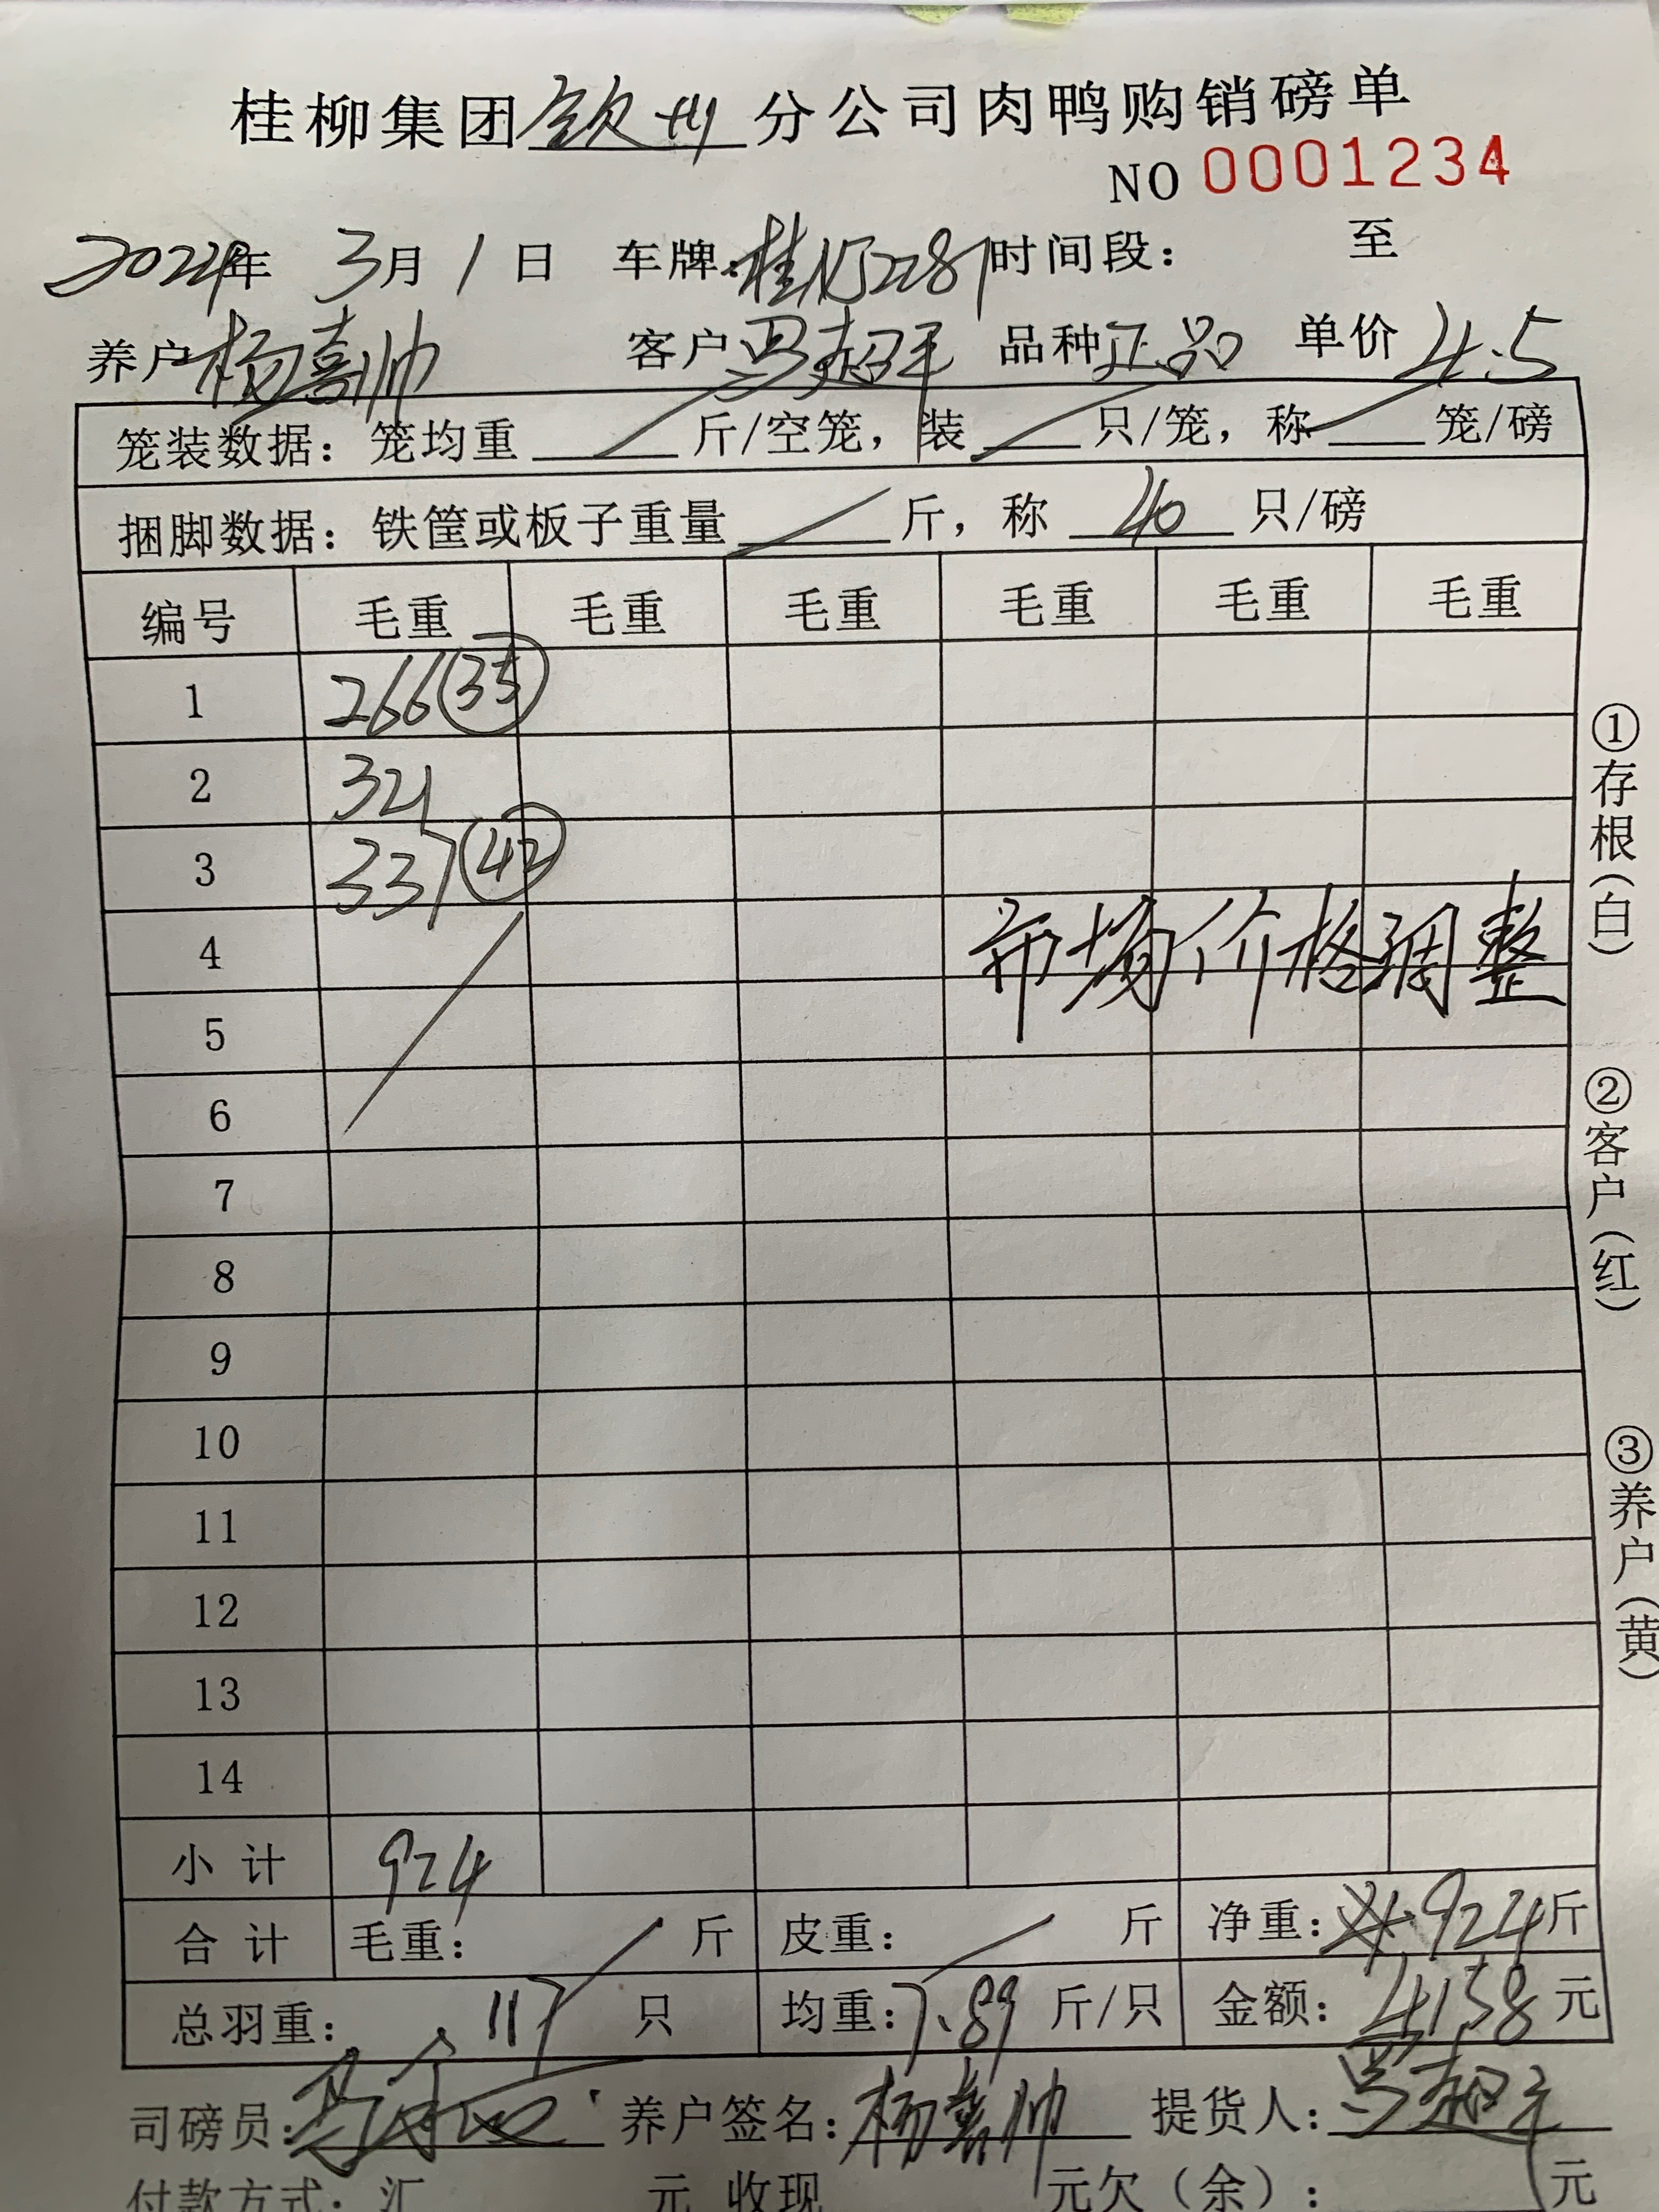 桂柳集团钦州分公司肉鸭购销磅单
NO 0001234
2024年 3月 1日 车牌: 时间段: 至
养户 杨喜帅 客户 品种 正品 单价 4.5
笼装数据: 笼均重 斤/空笼, 装 只/笼, 称 笼/磅
捆脚数据: 铁筐或板子重量 斤, 称 40 只/磅
编号 毛重 毛重 毛重 毛重 毛重 毛重
1 266 35
2 321
3 337 42
4 市场价格调整
5
6
7
8
9
10
11
12
13
14
小计 924
合计 毛重: 斤 皮重: 斤 净重: 924斤
总羽重: 117 只 均重: 7.89 斤/只 金额: 4158元
司磅员: 养户签名: 杨喜帅 提货人:
付款方式: 汇 元 收现 元欠(余): 元
①存根(白)
②客户(红)
③养户(黄)